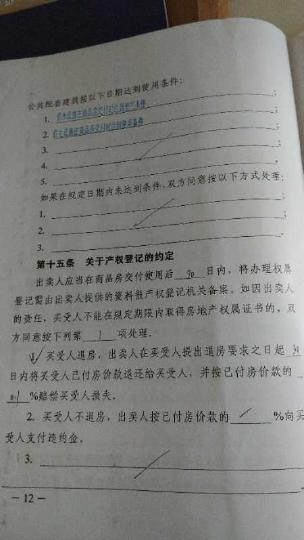 公共配套建筑按以下日期达到使用条件:
1. ;
2. ;
3. ;
4. ;
5. 。
如果在规定日期内未达到条件,双方同意按以下方式处理:
1. ;
2. ;
3. 。
第十五条 关于产权登记的约定
出卖人应当在商品房交付使用后 90 日内,将办理权属
登记需由出卖人提供的资料报产权登记机关备案。如因出卖人
的责任,买受人不能在规定期限内取得房地产权属证书的,双
方同意按下列第 1 项处理。
买受人退房,出卖人在买受人提出退房要求之日起 30
日内将买受人已付房价款退还给买受人,并按已付房价款的
%赔偿买受人损失。
2. 买受人不退房,出卖人按已付房价款的 %向买
受人支付违约金。
3.
— 12 —